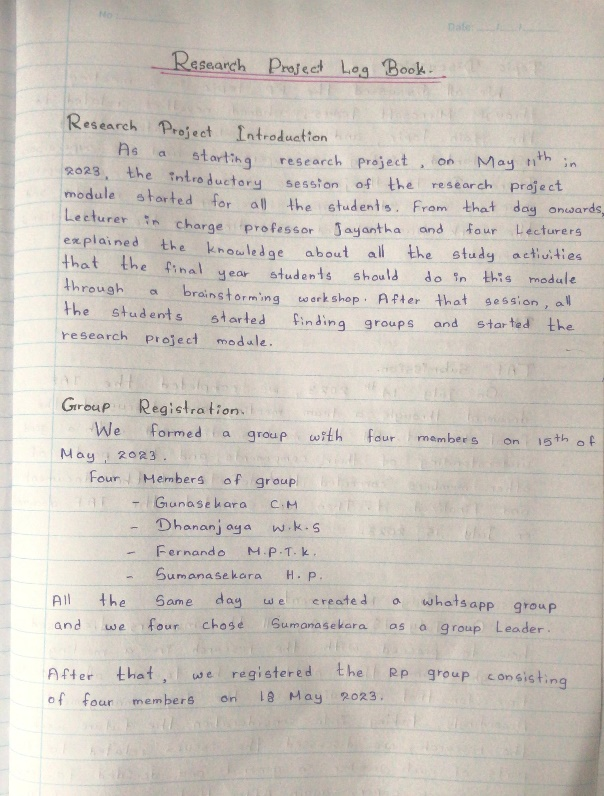 No
Date:
Research Project Log Book.
Research Project Introduction
As a starting research project, on May 11th in
2023, the introductory session of the research project
module started for all the students. From that day onwards,
Lecturer in charge professor Jayantha and four Lecturers
explained the knowledge about all the study activities
that the final year students should do in this module
through a brainstorming workshop. After that session, all
the students started finding groups and started the
research project module.
Group Registration.
We formed a group with four members on 15th of
May, 2023.
Four Members of group
- Gunasekara C.M
- Dhananjaya W.K.S
- Fernando M.P.T.K.
- Sumanasekara H.P.
All the same day we created a whatsapp group
and we four chose Sumanasekara as a group Leader.
After that, we registered the RP group consisting
of four members on 18 May 2023.